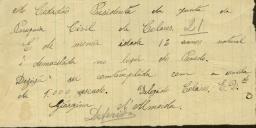 Ao Cidadão Presidente da Junta da
Paroquia Civil de Colares, 21
E de menor idade 12 anos natural
e domiciliado no logar de Penedo.
Deseja ser contemplado com a
de 1.000 escudo. Colares
Joaquim d'Almeida
Deferido